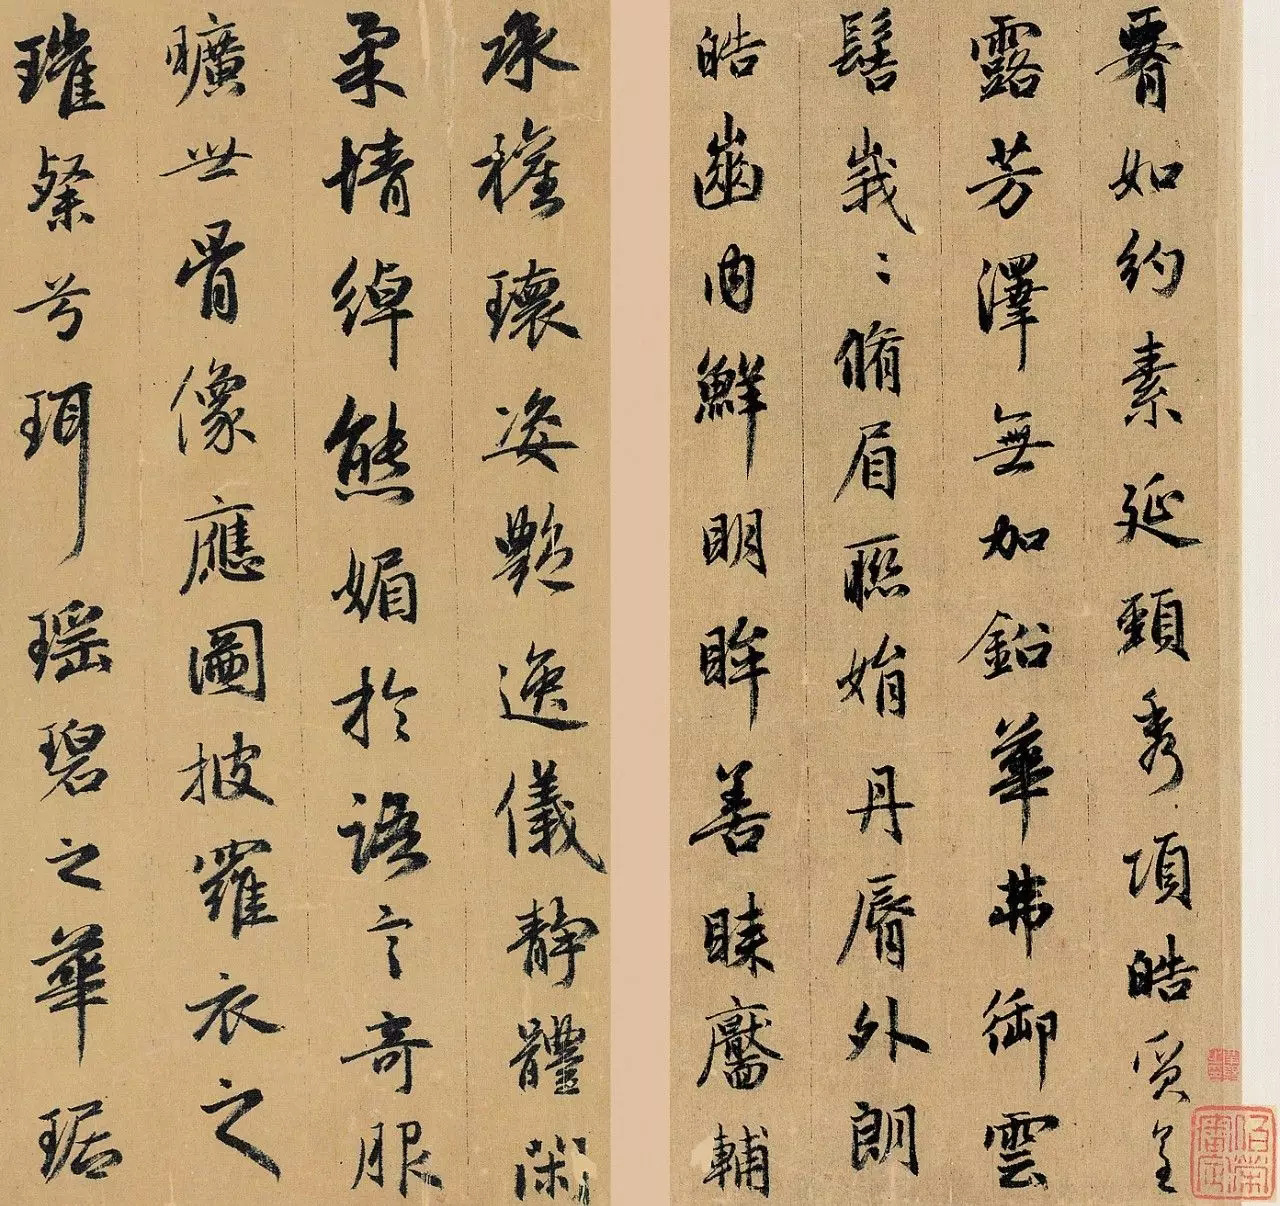 䏿如約素延頸秀項皓質呈
露芳澤無加鉛華弗御雲
髻峩〻脩眉聮娟丹脣外朗
皓齒内鮮明眸善睞靨輔
承權瓌姿艷逸儀靜體閑
柔情綽態媚於語言奇服
曠世骨像應圖披羅衣之
璀粲兮珥瑶碧之華琚